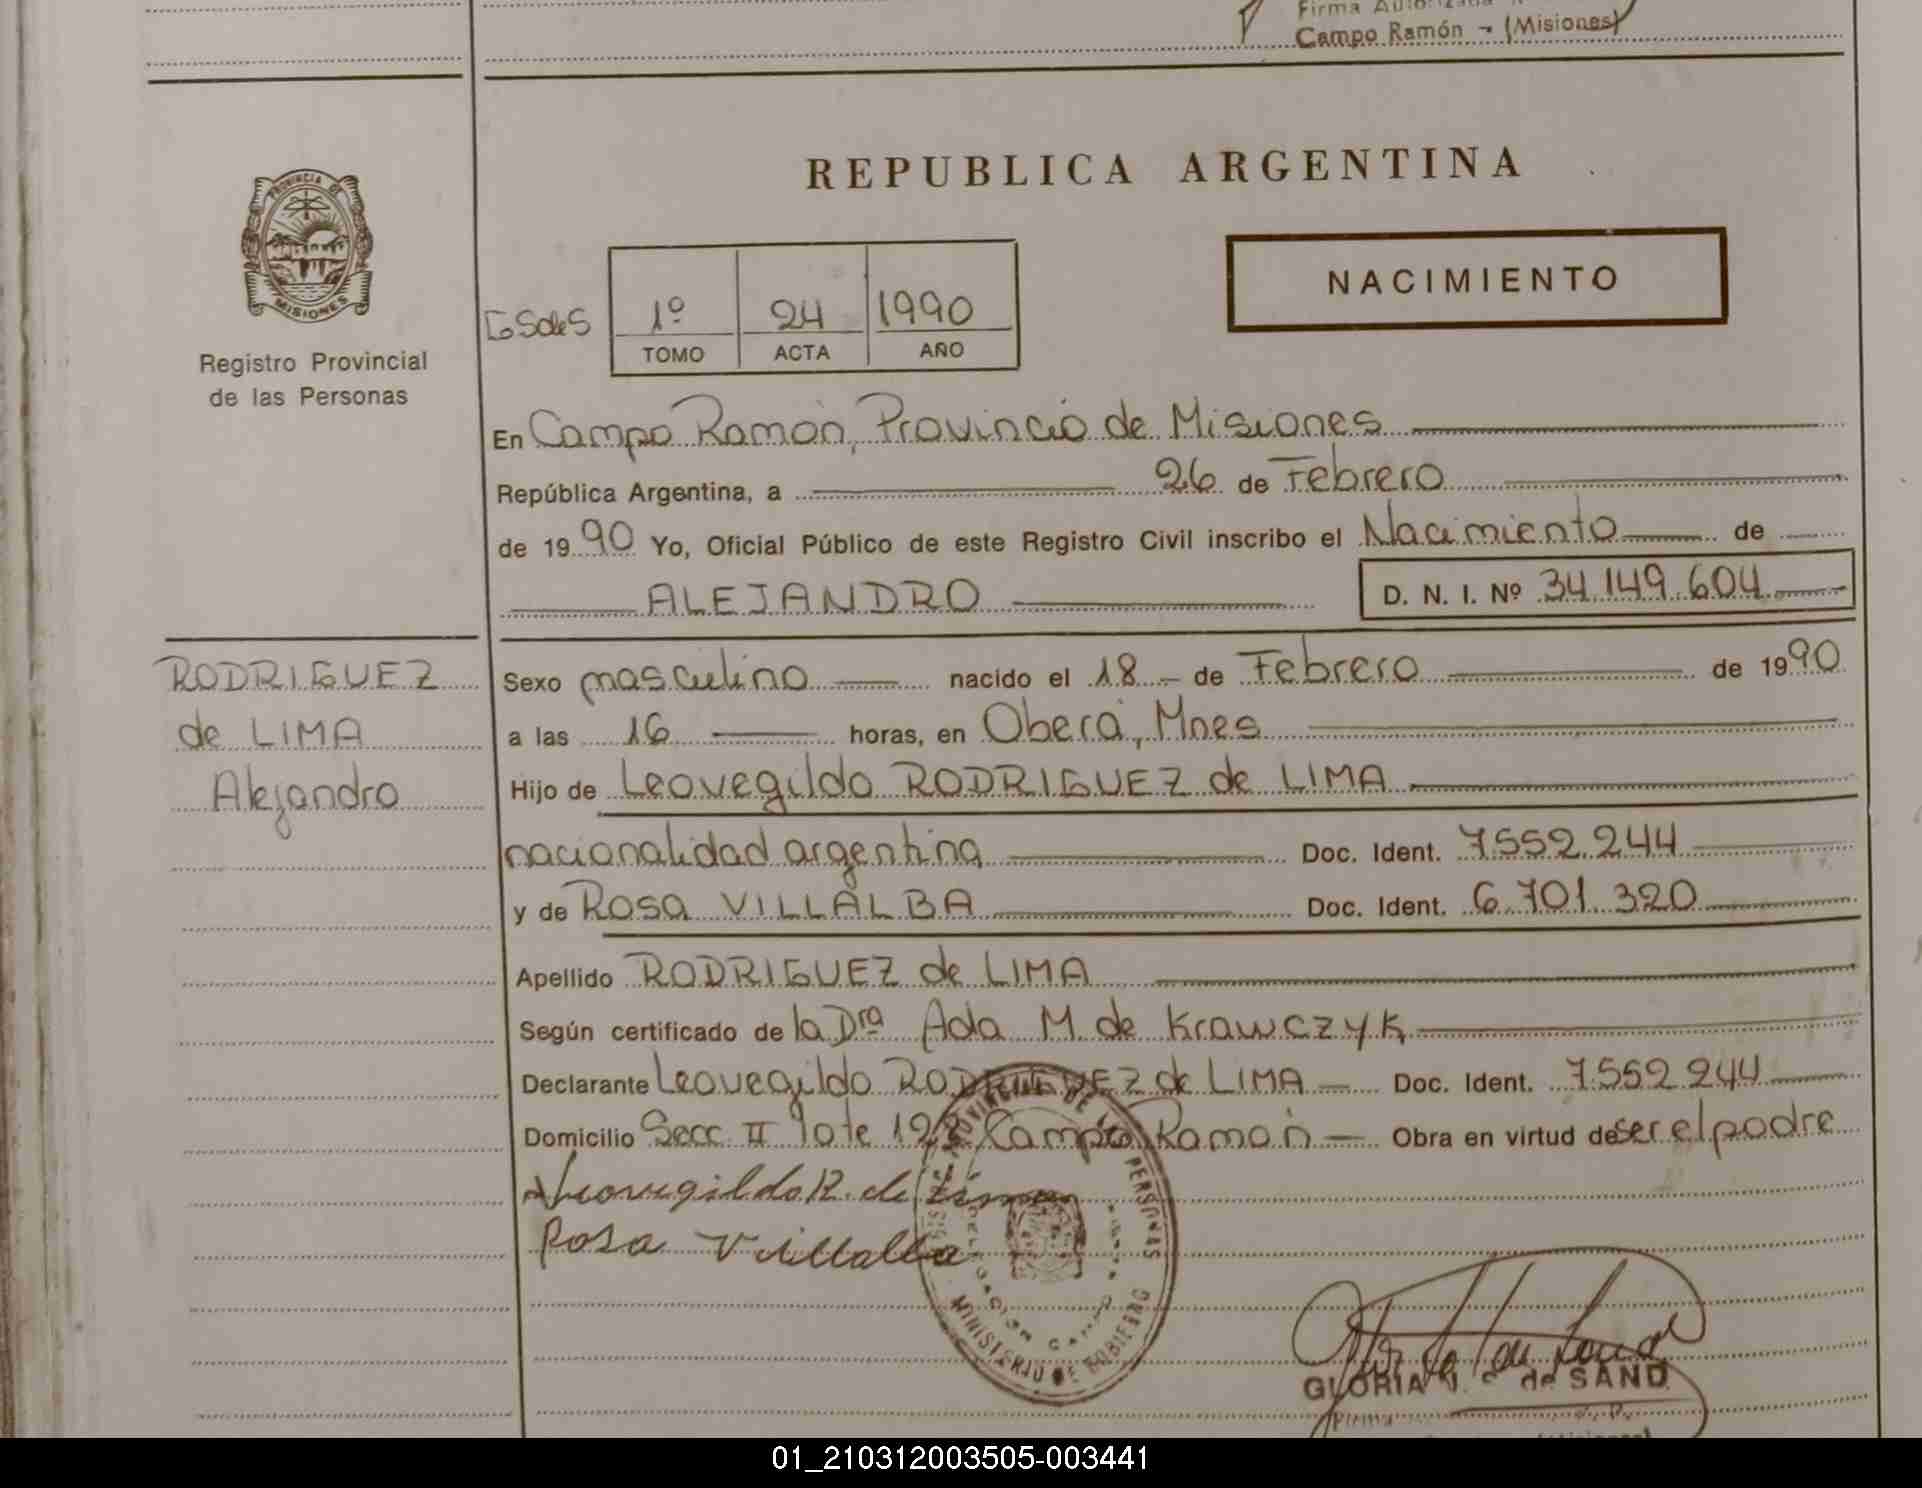 Firma Autorizada
Campo Ramón - (Misiones)
PROVINCIA DE
MISIONES
Registro Provincial
de las Personas
REPUBLICA ARGENTINA
NACIMIENTO
1º 24 1990
TOMO ACTA AÑO
En Campo Ramón, Provincia de Misiones
República Argentina, a 26 de Febrero
de 1990 Yo, Oficial Público de este Registro Civil inscribo el Nacimiento de
ALEJANDRO D. N. I. Nº 34.149.604
RODRIGUEZ
de LIMA
Alejandro
Sexo masculino nacido el 18 - de Febrero de 1990
a las 16 horas, en Oberá, Mnes
Hijo de Leovegildo RODRIGUEZ de LIMA
nacionalidad argentina Doc. Ident. 7.552.244
y de Rosa VILLALBA Doc. Ident. 6.701.320
Apellido RODRIGUEZ de LIMA
Según certificado de la Dra Ada M. de Krawczyk
Declarante Leovegildo RODRIGUEZ de LIMA Doc. Ident. 7.552.244
Domicilio Secc. II lote 128 Campo Ramón Obra en virtud de ser el padre
Leovegildo R. de Lima
Rosa Villalba
PROVINCIAL DE LAS PERSONAS
MINISTERIO DE GOBIERNO
GLORIA de SAND
01_210312003505-003441